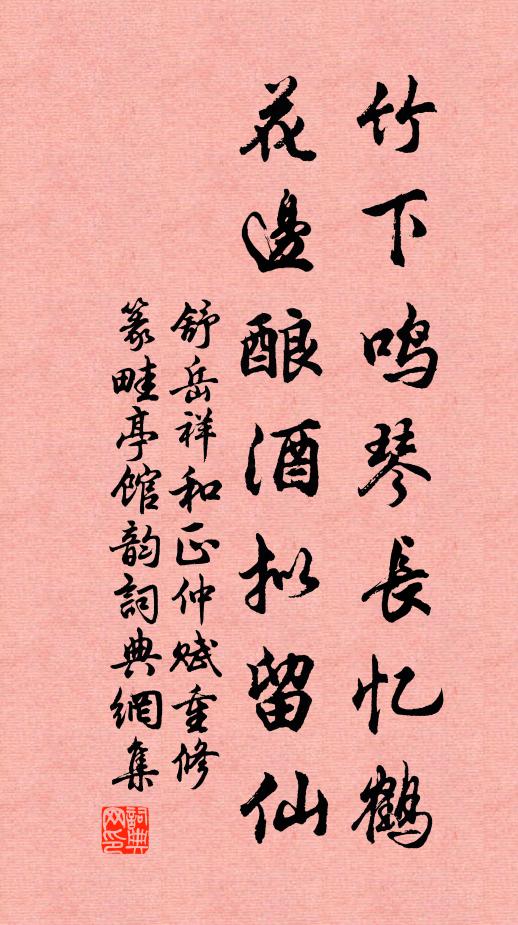 竹下鸣琴長忆鶴
花邊酿酒拟留仙
舒岳祥和正仲赋重修
篆畦亭館韵詞典網集
詞典网印